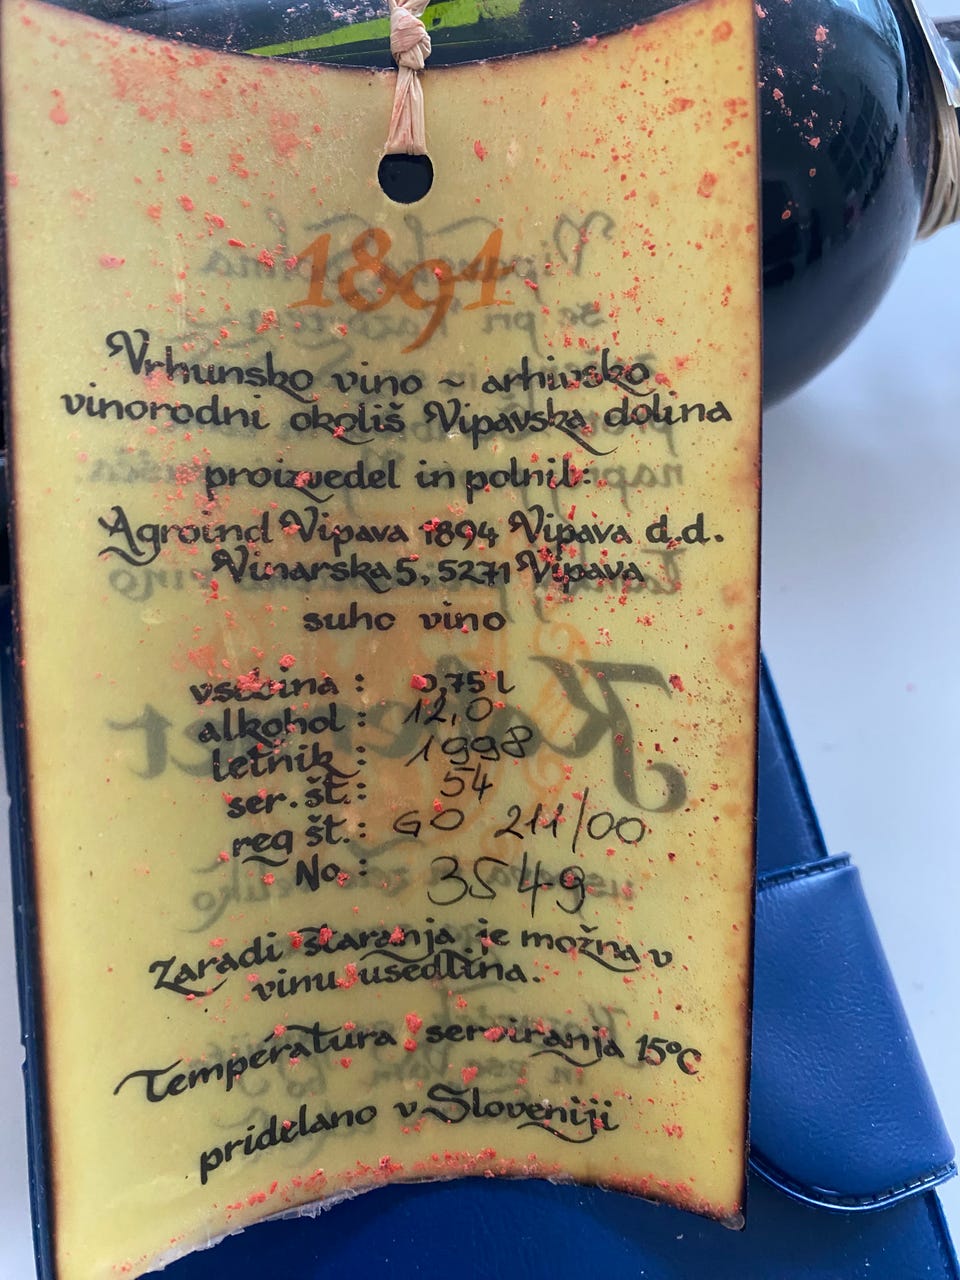 1891
Vrhunsko vino ~ arhivsko
vinorodni okoliš Vipavska dolina
proizvedel in polnil:
Agroind Vipava 1894 Vipava d.d.
Vinarska 5, 5271 Vipava
suho vino
vsebina : 0,75 l
alkohol : 12,0
letnik : 1998
ser. št.: 54
reg št.: GO 211/00
No.: 3549
Zaradi staranja je možna v
vinu usedlina.
Temperatura serviranja 15°C
pridelano v Sloveniji